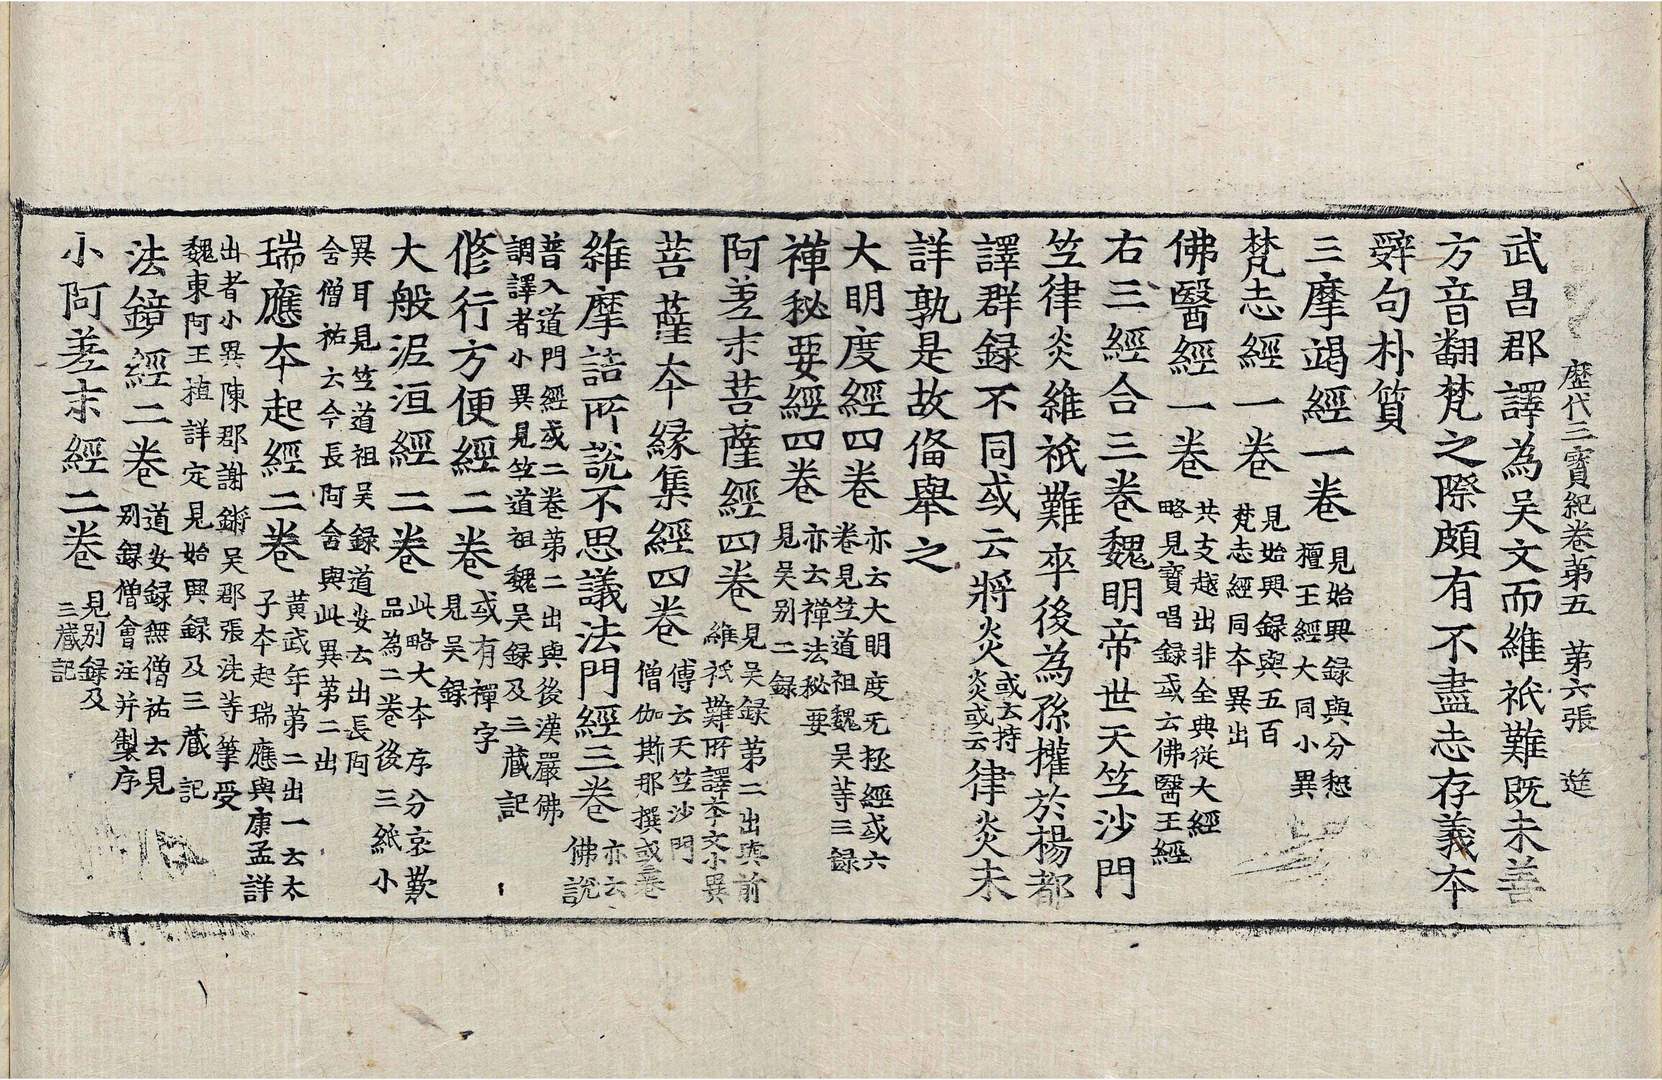 歷代三寶紀卷苐五　苐六張　𨗿
武昌郡譯為吴文而維祇難既未善
方音翻梵之際頗有不盡志存義夲
辤句朴質
三摩竭經一卷見始興録與分惒
檀王經大同小異
梵志經一卷見始興録與五百
梵志經同夲異出
佛醫經一卷共支越出非全典從大經
略見寶唱録或云佛醫王經
右三經合三卷魏明帝世天竺沙門
竺律炎維祇難卒後為孫權於楊都
譯群録不同或云將炎或云持
炎或云律炎未
詳孰是故俻舉之
大明度經四卷亦云大明度无極經或六
卷見竺道祖魏吴等三録
禪秘要經四卷亦云禪法秘要
見吴别二録
阿差末菩薩經四卷見吴録第二出與前
維祇難所譯夲文小異
菩薩夲緣集經四卷傅云天竺沙門
僧伽斯那撰或三卷
維摩詰所說不思議法門經三卷亦云佛說
普入道門經或二卷苐二出與後漢嚴佛
調譯者小異見竺道祖魏吴録及三藏記
修行方便經二卷或有禪字
見吴録
大般泥洹經二卷此略大夲序分哀歎
品為二卷後三紙小
異耳見竺道祖吴録道安云出長阿
含僧祐云今長阿含與此異苐二出
瑞應夲起經二卷黄武年苐二出一云太
子夲起瑞應與康孟詳
出者小異陳郡謝鏘吴郡張洗等筆受
魏東阿王植詳定見始興録及三藏記
法鏡經二卷道安録無僧祐云見
别録僧會注并製序
小阿差末經二卷見别録及
三藏記